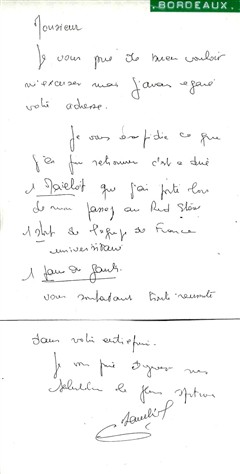 BORDEAUX.
Monsieur
Je vous prie de bien vouloir
m'excuser mais j'avais égaré
votre adresse.
Je vous expédie ce que
j'ai pu retrouver c'est à dire
1 Maillot que j'ai porté lors
de mon passage au Red Star
1 short de l'équipe de France
universitaire
1 paire de Gants.
vous souhaitant toute réussite
dans votre entreprise.
Je vous prie d'agréer mes
salutations les plus